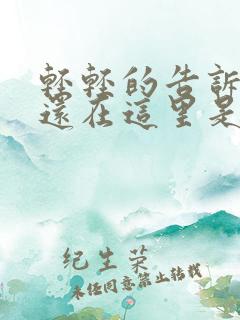 輕輕的告訴
還在這里是
纪生荣
未经同意禁止转载